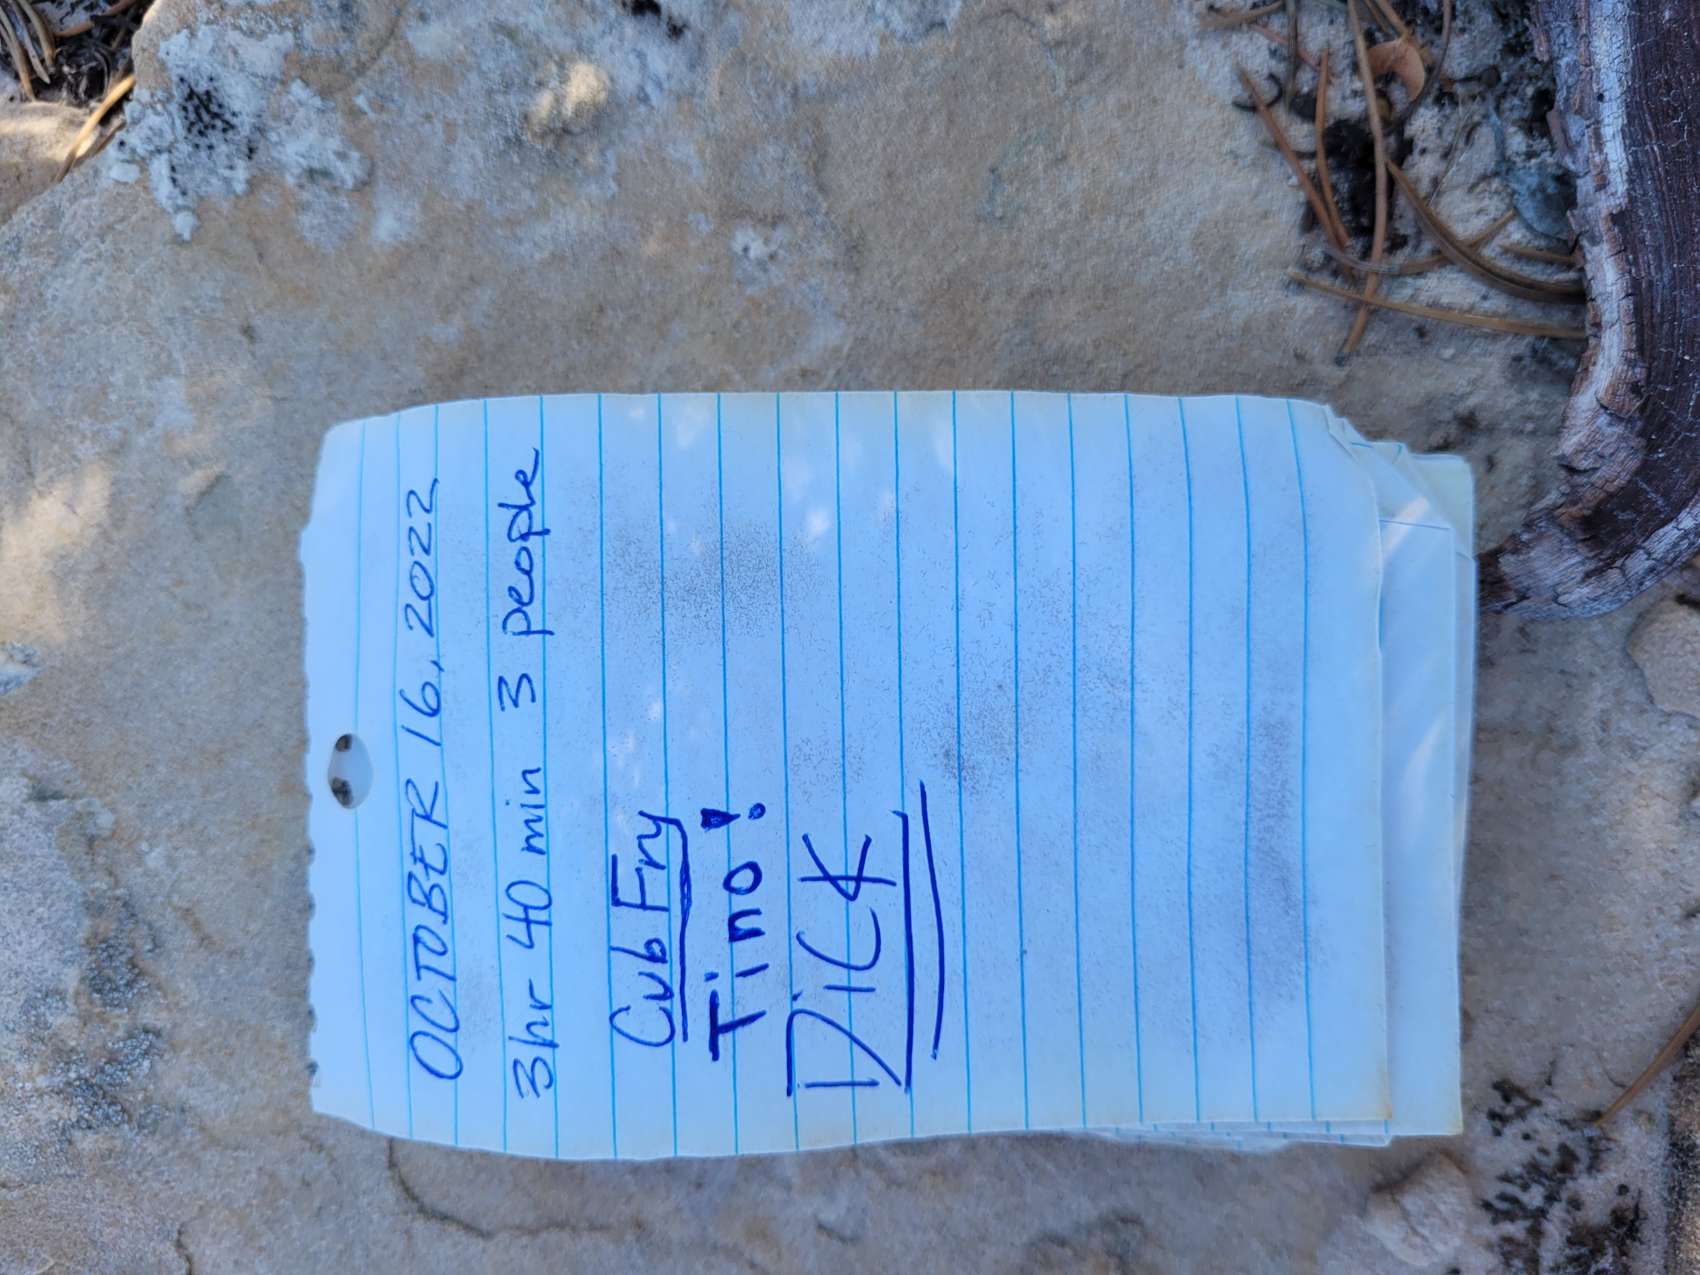 OCTOBER 16, 2022
3hr 40 min 3 people
Cub Fry
Tino!
DiCK